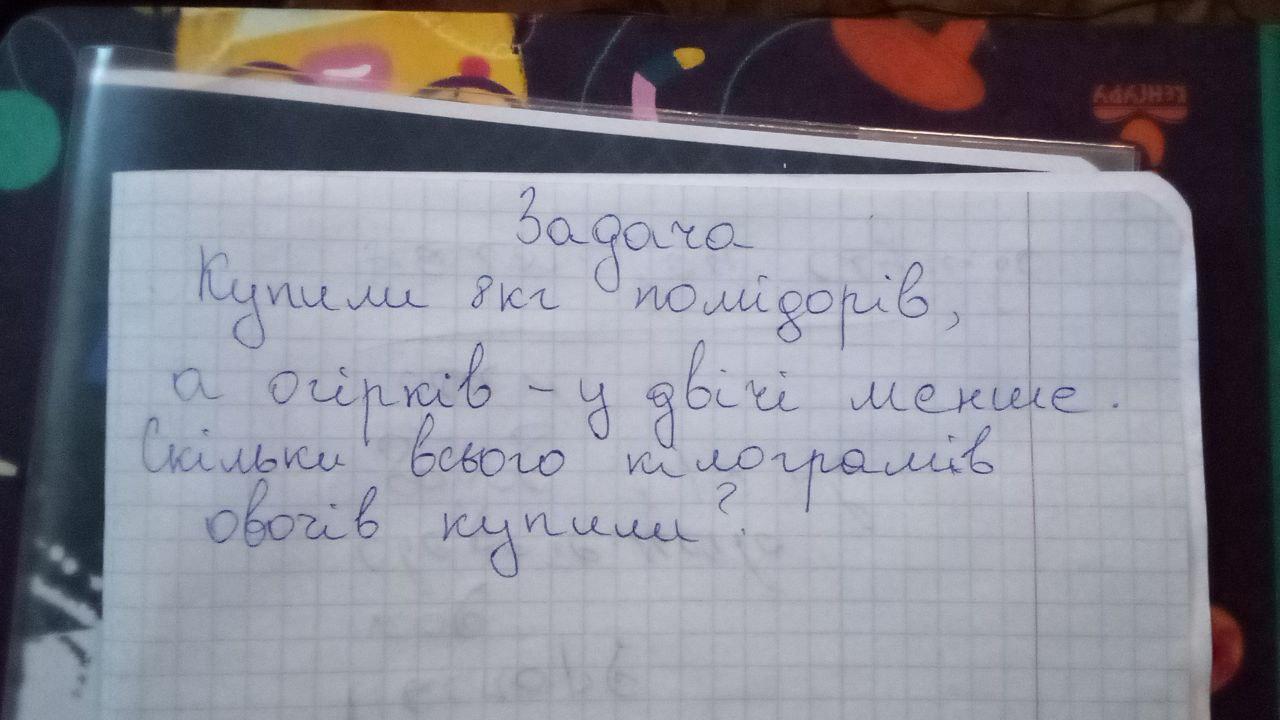 КЕНГУРУ
Задача
Купили 8кг помідорів,
а огірків - у двічі менше.
Скільки всього кілограмів
овочів купили?